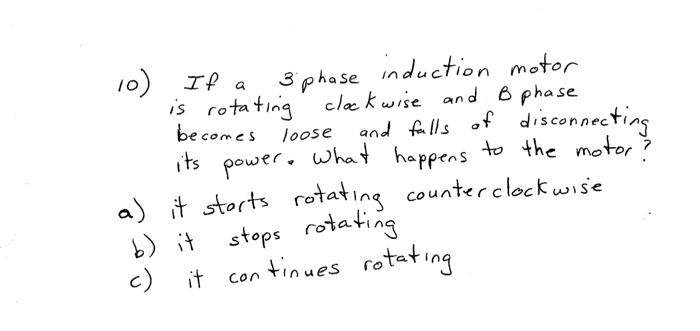 10) If a 3 phase induction motor
is rotating clockwise and B phase
becomes loose and falls of disconnecting
its power. What happens to the motor?
a) it starts rotating counterclockwise
b) it stops rotating
c) it continues rotating